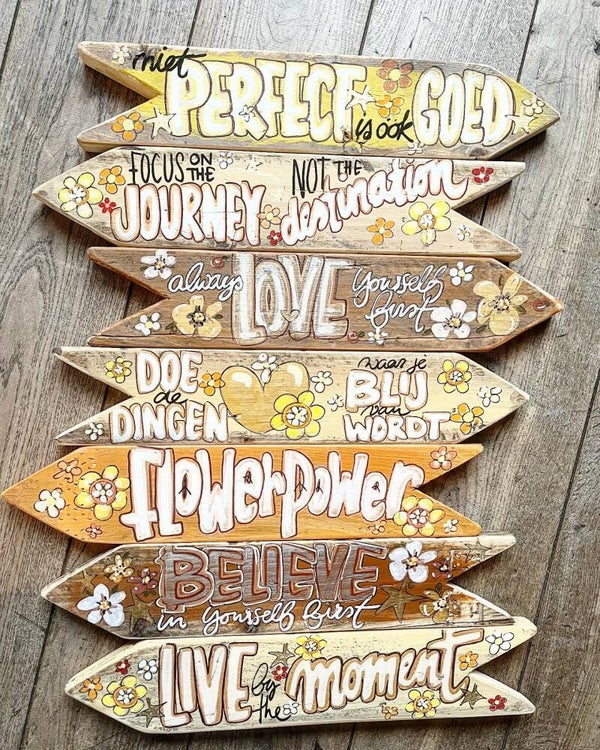 niet PERFECT is oók GOED
FOCUS ON THE JOURNEY NOT THE destination
always LOVE Yourself first
DOE de DINGEN waar je BLIJ van WORDT
flowerpower
BELIEVE in yourself first
LIVE by the moment